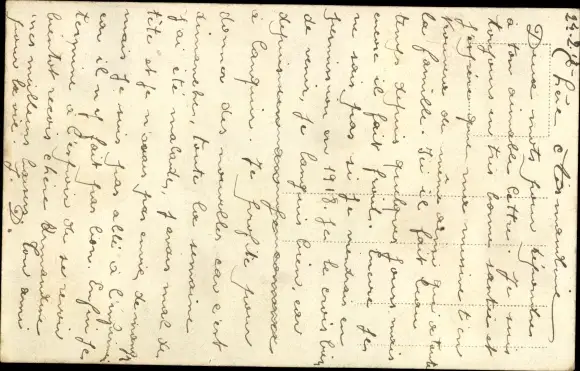 22-2-18
Chère Amandine
Deux mots pour répondre
à ton aimable lettre. Je suis
toujours en très bonne santé et
j'espère que ma missive t'en
trouvera de même ainsi qu'à toute
la famille. Ici il fait beau
temps depuis quelques jours mais
encore il fait froid. Encore je
ne sais pas si je viendrai en
permission en 1918 je le crois bien
de venir, je languis bien, car
depuis
à languir. Je profite pour
donner des nouvelles car c'est
dimanche, toute la semaine
j'ai été malade, j'avais mal de
tête et je n'avais pas envie de manger
mais je suis pas allé à l'infirmerie
car il n'y fait pas bon. Enfin je
termine à l'espoir de se revoir
bientôt reçois chère Amandine
mes meilleurs baisers. Ton ami
pour la vie. J. D.